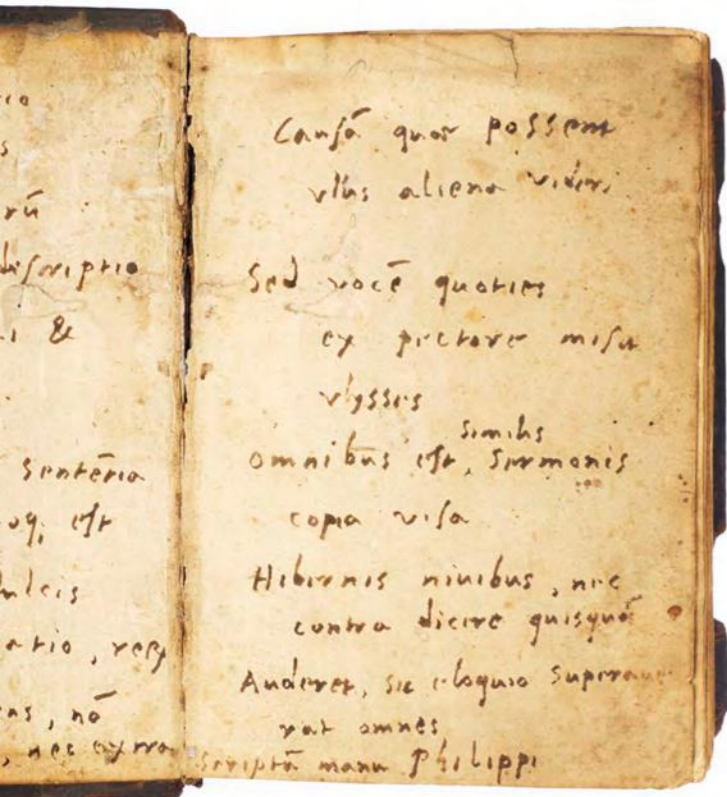 rū
descriptio
&
Sentētia
est
dulcis
atio,
nō
, nec extra
Causā quae possent
ullis aliena videri
Sed vocē quoties
ex pectore misit
vlysses
similis
omnibus est, sermonis
copia visa
Hibernis nivibus, nec
contra dicere quisquā
Auderet, sic eloquio supera
rat omnes
Scriptū manu Philippi